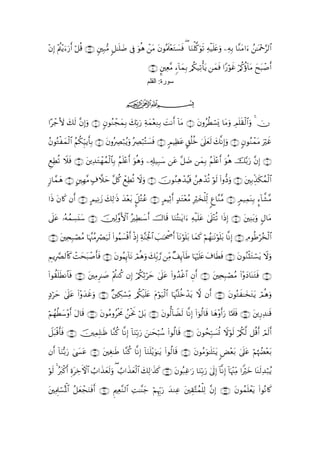 الرَّحْمَٰنُ ءَامَنَّا بِهِۦ وَعَلَيْهِ تَوَكَّلْنَا ۖ فَسَتَعْلَمُونَ مَنْ هُوَ فِى ضَلَٰلٍ مُّبِينٍ ﴿٢٩﴾ قُلْ أَرَءَيْتُمْ إِنْ
أَصْبَحَ مَآؤُكُمْ غَوْرًا فَمَن يَأْتِيكُم بِمَآءٍ مَّعِينٍۭ ﴿٣٠﴾
سورة: القلم
بِسْمِ اللَّهِ الرَّحْمَٰنِ الرَّحِيمِ
نٓ ۚ وَالْقَلَمِ وَمَا يَسْطُرُونَ ﴿١﴾ مَآ أَنتَ بِنِعْمَةِ رَبِّكَ بِمَجْنُونٍ ﴿٢﴾ وَإِنَّ لَكَ لَأَجْرًا
غَيْرَ مَمْنُونٍ ﴿٣﴾ وَإِنَّكَ لَعَلَىٰ خُلُقٍ عَظِيمٍ ﴿٤﴾ فَسَتُبْصِرُ وَيُبْصِرُونَ ﴿٥﴾ بِأَييِّكُمُ الْمَفْتُونُ
﴿٦﴾ إِنَّ رَبَّكَ هُوَ أَعْلَمُ بِمَن ضَلَّ عَن سَبِيلِهِۦ وَهُوَ أَعْلَمُ بِالْمُهْتَدِينَ ﴿٧﴾ فَلَا تُطِعِ
الْمُكَذِّبِينَ ﴿٨﴾ وَدُّوا۟ لَوْ تُدْهِنُ فَيُدْهِنُونَ ﴿٩﴾ وَلَا تُطِعْ كُلَّ حَلَّافٍ مَّهِينٍ ﴿١٠﴾ هَمَّازٍ
مَّشَّآءٍۭ بِنَمِيمٍ ﴿١١﴾ مَّنَّاعٍ لِّلْخَيْرِ مُعْتَدٍ أَثِيمٍ ﴿١٢﴾ عُتُلٍّۭ بَعْدَ ذَٰلِكَ زَنِيمٍ ﴿١٣﴾ أَن كَانَ ذَا
مَالٍ وَبَنِينَ ﴿١٤﴾ إِذَا تُتْلَىٰ عَلَيْهِ ءَايَٰتُنَا قَالَ أَسَٰطِيرُ الْأَوَّلِينَ ﴿١٥﴾ سَنَسِمُهُۥ عَلَى
الْخُرْطُومِ ﴿١٦﴾ إِنَّا بَلَوْنَٰهُمْ كَمَا بَلَوْنَآ أَصْحَٰبَ الْجَنَّةِ إِذْ أَقْسَمُوا۟ لَيَصْرِمُنَّهَا مُصْبِحِينَ ﴿١٧﴾
وَلَا يَسْتَثْنُونَ ﴿١٨﴾ فَطَافَ عَلَيْهَا طَآئِفٌ مِّن رَّبِّكَ وَهُمْ نَآئِمُونَ ﴿١٩﴾ فَأَصْبَحَتْ كَالصَّرِيمِ
﴿٢٠﴾ فَتَنَادَوْا۟ مُصْبِحِينَ ﴿٢١﴾ أَنِ اغْدُوا۟ عَلَىٰ حَرْثِكُمْ إِن كُنتُمْ صَٰرِمِينَ ﴿٢٢﴾ فَانطَلَقُوا۟
وَهُمْ يَتَخَٰفَتُونَ ﴿٢٣﴾ أَن لَّا يَدْخُلَنَّهَا الْيَوْمَ عَلَيْكُم مِّسْكِينٌ ﴿٢٤﴾ وَغَدَوْا۟ عَلَىٰ حَرْدٍ
قَٰدِرِينَ ﴿٢٥﴾ فَلَمَّا رَأَوْهَا قَالُوٓا۟ إِنَّا لَضَآلُّونَ ﴿٢٦﴾ بَلْ نَحْنُ مَحْرُومُونَ ﴿٢٧﴾ قَالَ أَوْسَطُهُمْ
أَلَمْ أَقُل لَّكُمْ لَوْلَا تُسَبِّحُونَ ﴿٢٨﴾ قَالُوا۟ سُبْحَٰنَ رَبِّنَآ إِنَّا كُنَّا ظَٰلِمِينَ ﴿٢٩﴾ فَأَقْبَلَ
بَعْضُهُمْ عَلَىٰ بَعْضٍ يَتَلَٰوَمُونَ ﴿٣٠﴾ قَالُوا۟ يَٰوَيْلَنَآ إِنَّا كُنَّا طَٰغِينَ ﴿٣١﴾ عَسَىٰ رَبُّنَآ أَن
يُبْدِلَنَا خَيْرًا مِّنْهَآ إِنَّآ إِلَىٰ رَبِّنَا رَٰغِبُونَ ﴿٣٢﴾ كَذَٰلِكَ الْعَذَابُ ۖ وَلَعَذَابُ الْءَاخِرَةِ أَكْبَرُ ۚ لَوْ
كَانُوا۟ يَعْلَمُونَ ﴿٣٣﴾ إِنَّ لِلْمُتَّقِينَ عِندَ رَبِّهِمْ جَنَّٰتِ النَّعِيمِ ﴿٣٤﴾ أَفَنَجْعَلُ الْمُسْلِمِينَ